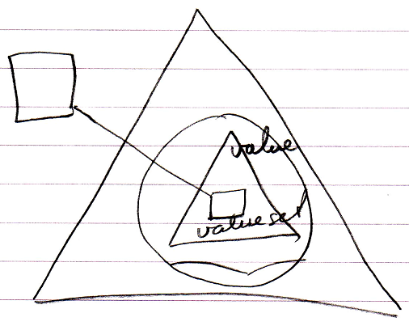 value
value set